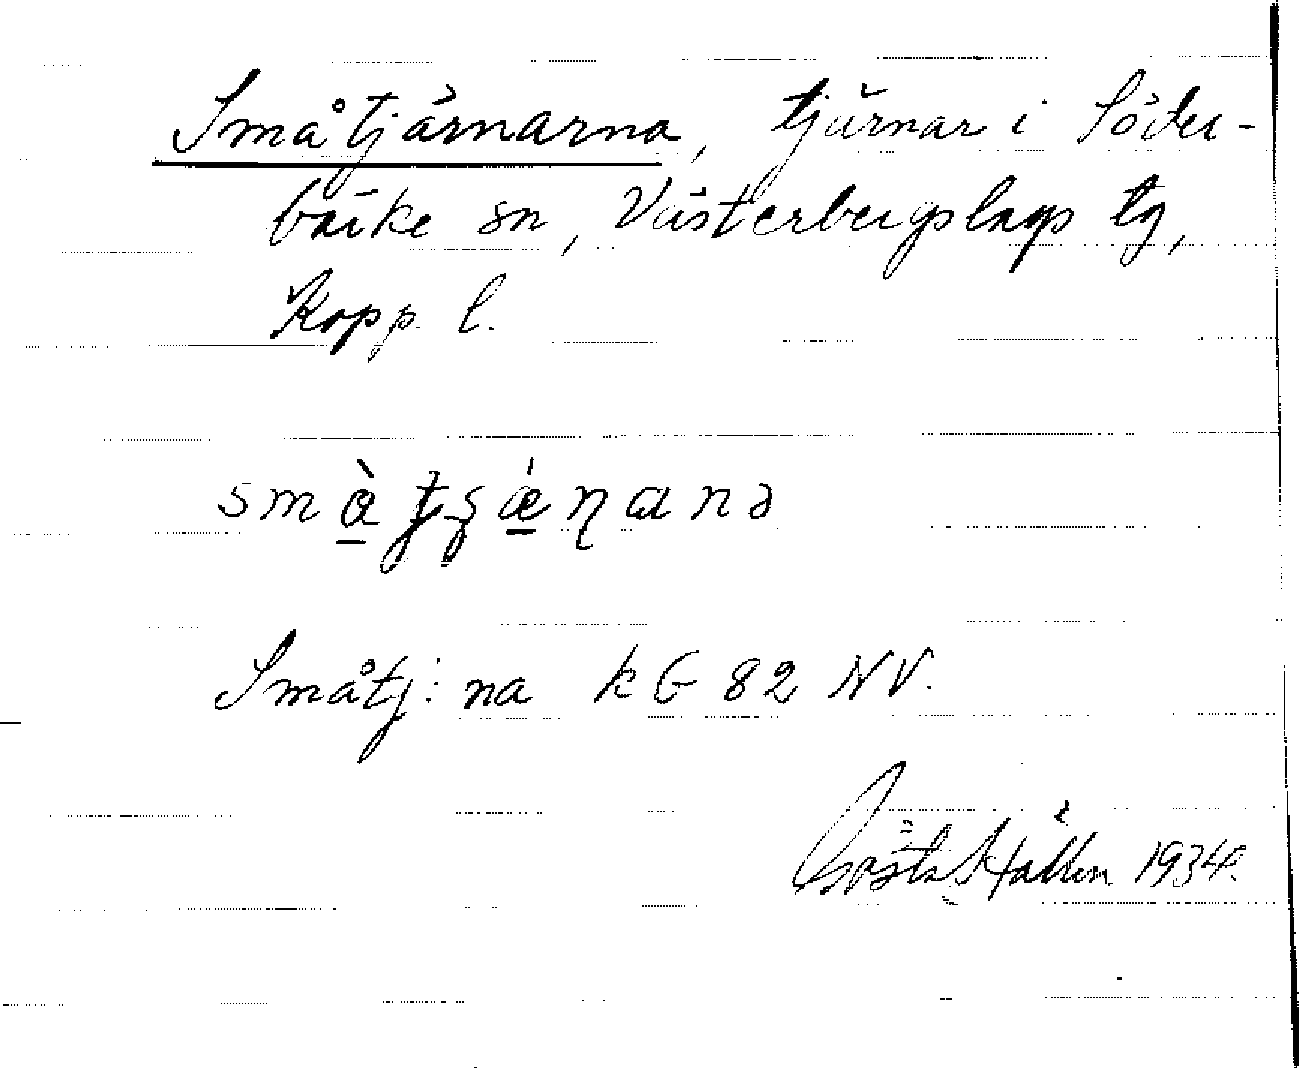 Småtjärnarna, tjärnar i Söder-
bärke sn, Västerbergslags tg,
Kopp. l.
Småtj:na k G 82 NV.
Gösta 1934.